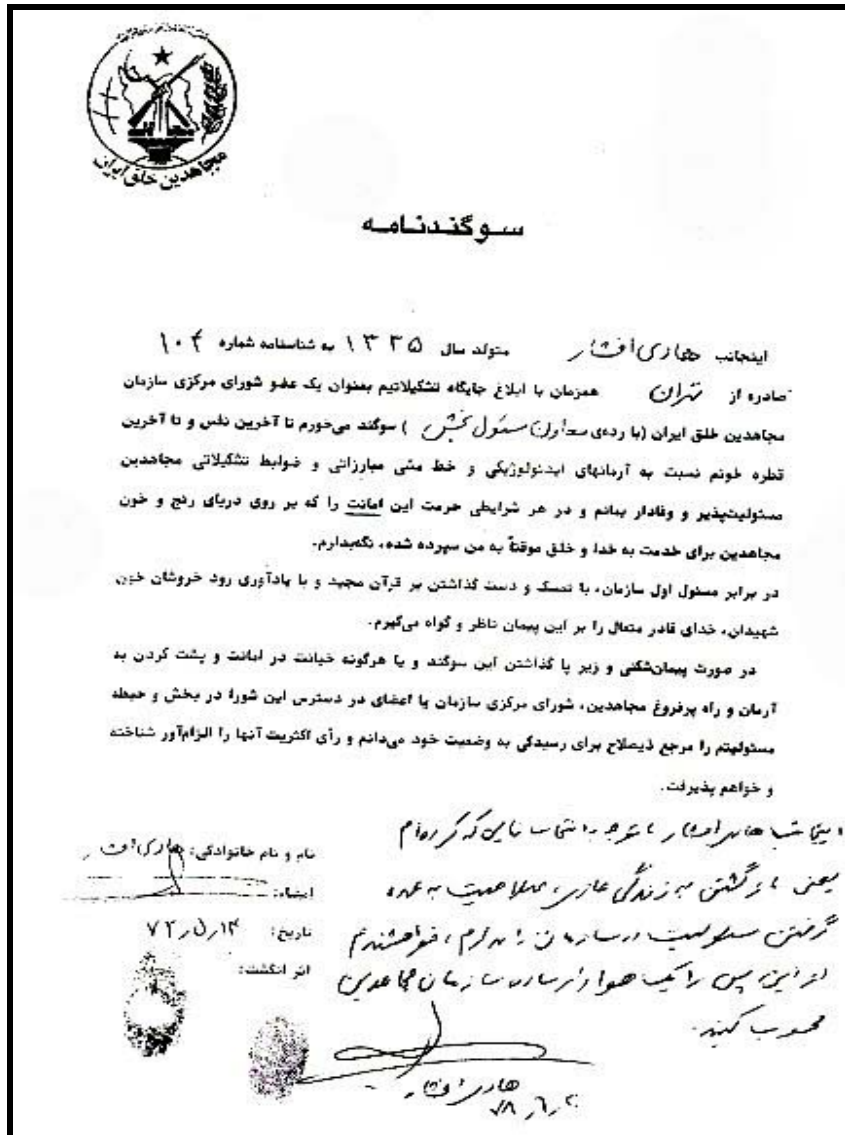 مجاهدین خلق ایران
سوگندنامه
اینجانب هادی افشار متولد سال ۱۳۳۵ به شناسنامه شماره ۱۰۴
صادره از تهران همزمان با ابلاغ جایگاه تشکیلاتیم بعنوان یک عضو شورای مرکزی سازمان
مجاهدین خلق ایران (با رده‌ی معاونت مسئول بخش) سوگند می‌خورم تا آخرین نفس و تا آخرین
قطره خونم نسبت به آرمانهای ایدئولوژیکی و خط مشی مبارزاتی و ضوابط تشکیلاتی مجاهدین
مسئولیت‌پذیر و وفادار بمانم و در هر شرایطی حرمت این امانت را که بر روی دریای رنج و خون
مجاهدین برای خدمت به خدا و خلق موقتاً به من سپرده شده، نگهدارم.
در برابر مسئول اول سازمان، با تمسک و دست گذاشتن بر قرآن مجید و با یادآوری رود خروشان خون
شهیدان، خدای قادر متعال را بر این پیمان ناظر و گواه می‌گیرم.
در صورت پیمان‌شکنی و زیر پا گذاشتن این سوگند و یا هرگونه خیانت در امانت و پشت کردن به
آرمان و راه پرفروغ مجاهدین، شورای مرکزی سازمان یا اعضای در دسترس این شورا در بخش و حیطه
مسئولیتم را مرجع ذیصلاح برای رسیدگی به وضعیت خود می‌دانم و رأی اکثریت آنها را الزام‌آور شناخته
و خواهم پذیرفت.
نام و نام خانوادگی: هادی افشار
امضاء:
تاریخ: ۷۴٫۵٫۱۴
اثر انگشت:
اینجانب هادی افشار با توجه به انتخاب نهایی که کرده‌ام
یعنی بازگشتن به زندگی عادی، صلاحیت به عهده
گرفتن مسئولیت در سازمان را ندارم، خواهشمندم
از این پس را یک هوادار ساده سازمان مجاهدین
محسوب کنید.
هادی افشار